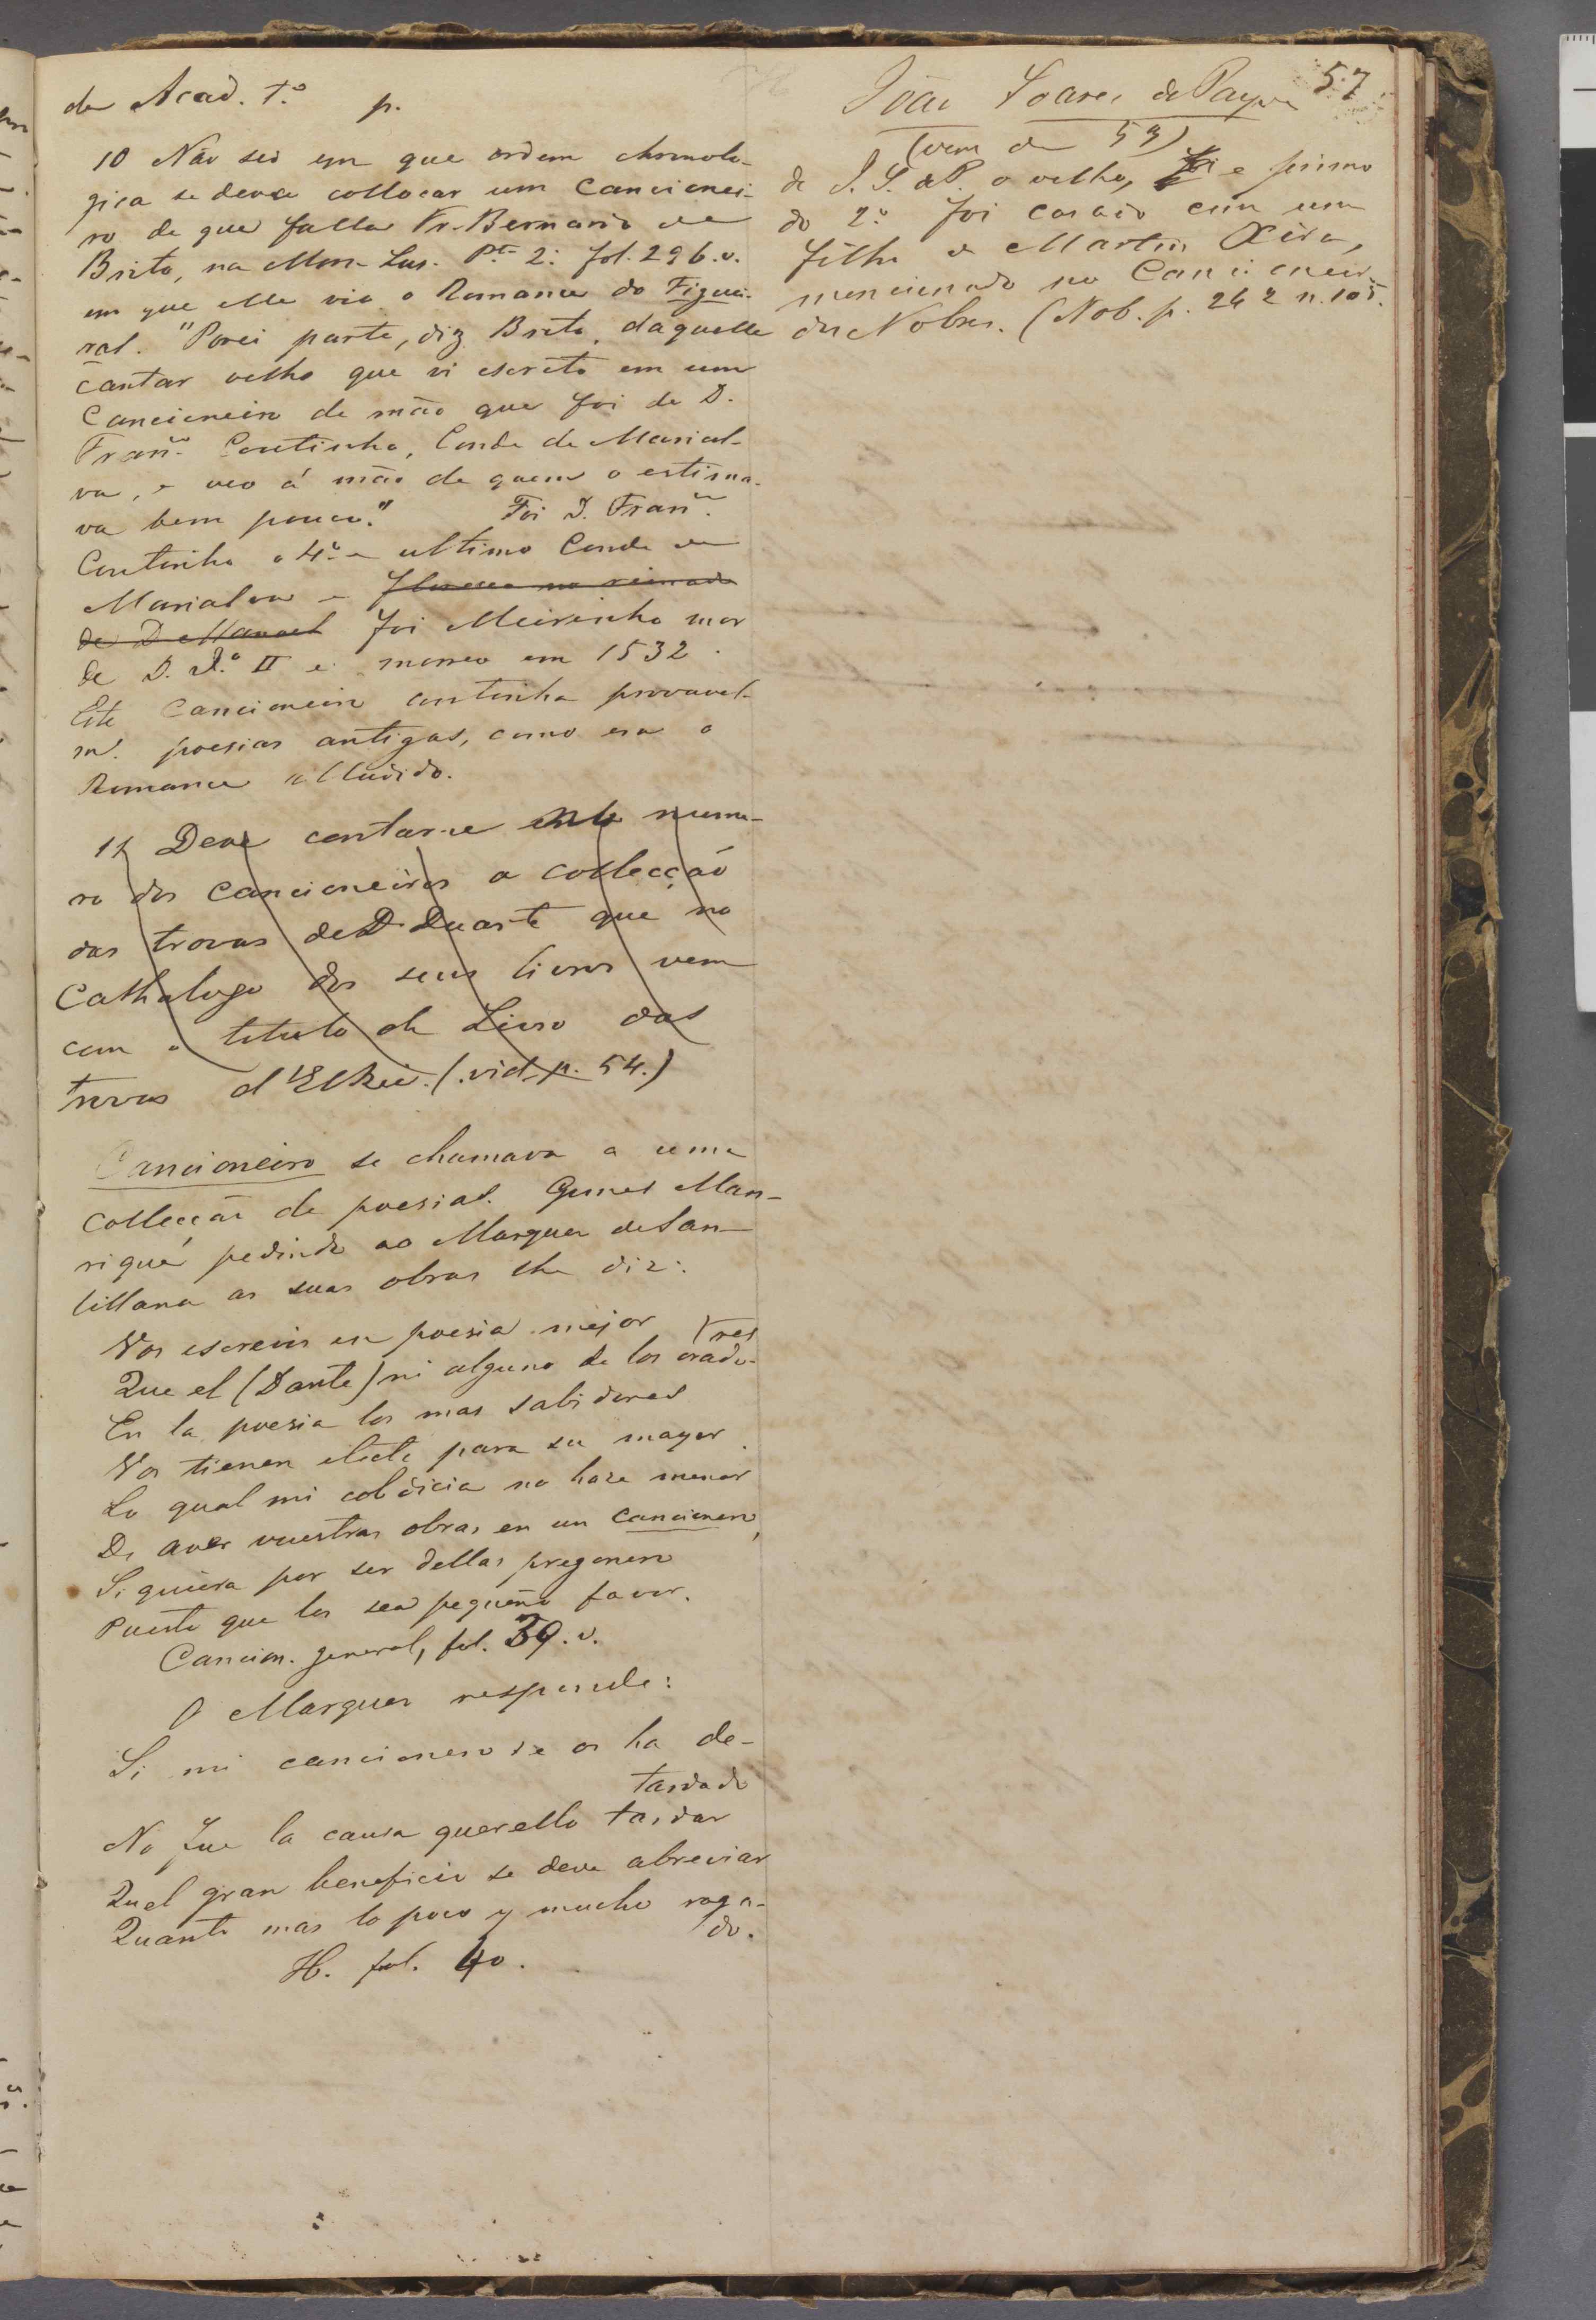 da Acad. T.º p.
10 Não sei em que ordem chronolo-
gica se deva collocar um Cancionei-
ro de que falla Fr. Bernardo de
Brito, na Mon. Lus. P.te 2.ª fol. 296.v.
em que elle vio o Romance do Figuei-
ral. "Porei parte, diz Brito, daquelle
cantar velho que vi escrito em um
Cancioneiro de mão que foi de D.
Fran.co Coutinho, Conde de Marial-
va, e veo á mão de quem o estima-
va bem pouco." Foi D. Fran.co
Coutinho o 4.º e ultimo Conde de
Marialva e floreceo no reinado
de D Manoel foi Meirinho mor
de D. J.º II e morreo em 1532.
Este Cancioneiro continha provavel-
m.te poesias antigas, como era o
Romance alludido.
11 Deve contar-se no nume-
ro dos Cancioneiros a collecção
das trovas de D Duarte que no
Cathalogo dos seus livros vem
com o titulo de Livro das
trovas d'ElRei. (vid. p. 54.)
Cancioneiro se chamava a uma
collecção de poesias. Gomes Man-
rique pedindo ao Marquez de San-
tillana as suas obras lhe diz:
Vos escrevis en poesia mejor
Que el (Dante) ni alguno de los orado-
res
En la poesia los mas sabidores
Vos tienen eleto para su mayor
Lo qual mi cobdicia no haze menor
De aver vuestras obras en un cancionero,
Siquiera por ser dellas pregonero
Puesto que les sea pequeño favor.
Cancion. general, fol. 39.v.
O Marquez responde:
Si mi cancionero se os ha de-
tardado
No fue la causa querello tardar
Quel gran beneficio se deve abreviar
Quanto mas lo poco y mucho roga-
do.
Ib. fol. 40.
João Soares de Payva 57
(vem de 53)
de J. S. de P. o velho, e primo
do 2.º foi casado com uma
filha de Martin Xira,
mencionado no Cancioneir.
dos Nobres. (Nob. p. 242 n. 105.